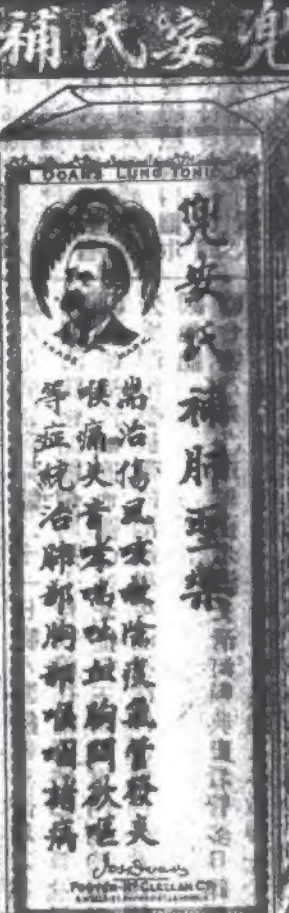 兜安氏補
DOAN'S LUNG TONIC
TRADE MARK
兜安氏補肺聖藥
耑治傷風咳嗽除痰氣管發炎
喉痛失音哮喘吐血胸悶欲嘔
等症統治肺部胸部喉咽諸病
FOSTER-McCLELLAN CO.